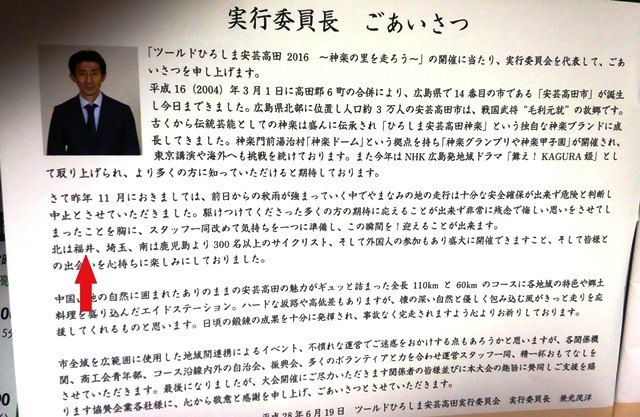 実行委員長　ごあいさつ
「ツールドひろしま安芸高田 2016　～神楽の里を走ろう～」の開催に当たり、実行委員会を代表して、ごあ
いさつを申し上げます。
平成 16（2004）年 3 月 1 日に高田郡 6 町の合併により、広島県で 14 番目の市である「安芸高田市」が誕生
し今日まできました。広島県北部に位置し人口約 3 万人の安芸高田市は、戦国武将 “毛利元就” の故郷です。
古くから伝統芸能としての神楽は盛んに伝承され「ひろしま安芸高田神楽」という独自な神楽ブランドに成
長してきました。神楽門前湯治村「神楽ドーム」という拠点を持ち「神楽グランプリや神楽甲子園」が開催され、
東京講演や海外へも挑戦を続けております。また今年は NHK 広島発地域ドラマ「舞え！KAGURA 姫」とし
て取り上げられ、より多くの方に知っていただけると期待しております。
さて昨年 11 月におきましては、前日からの秋雨が強まっていく中でやまなみの地の走行は十分な安全確保が出来ず危険と判断し
中止とさせていただきました。駆けつけてくださった多くの方の期待に応えることが出来ず非常に残念で悔しい思いをさせてし
まったことを胸に、スタッフ一同改めて気持ちを一つに準備し、この瞬間を！迎えることが出来ます。
北は福井、埼玉、南は鹿児島より 300 名以上のサイクリスト、そして外国人の参加もあり盛大に開催できますこと、そして皆様と
の出会いを心待ちに楽しみにしておりました。
中国山地の自然に囲まれたありのままの安芸高田の魅力がギュッと詰まった全長 110km と 60km のコースに各地域の特色や郷土
料理を盛り込んだエイドステーション。ハードな坂路や高低差もありますが、懐の深い自然と優しく包み込む風がきっと走りを応
援してくれるものと思います。日頃の鍛錬の成果を十分に発揮され、事故なく完走されますよう心よりお祈りしております。
市全域を広範囲に使用した地域間連携によるイベント、不慣れな運営でご迷惑をおかけする点もあろうかと思いますが、各関係機
関、商工会青年部、コース沿線内外の自治会、振興会、多くのボランティアと力を合わせ運営スタッフ一同、精一杯おもてなしを
させていただきます。最後になりましたが、大会開催にご尽力いただきます関係者の皆様並びに本大会の趣旨に賛同しご支援を賜
ります協賛企業各社様に、心から敬意と感謝を申し上げ、ごあいさつとさせていただきます。
平成 28 年 6 月 19 日　ツールドひろしま安芸高田実行委員会　実行委員長　兼光茂洋